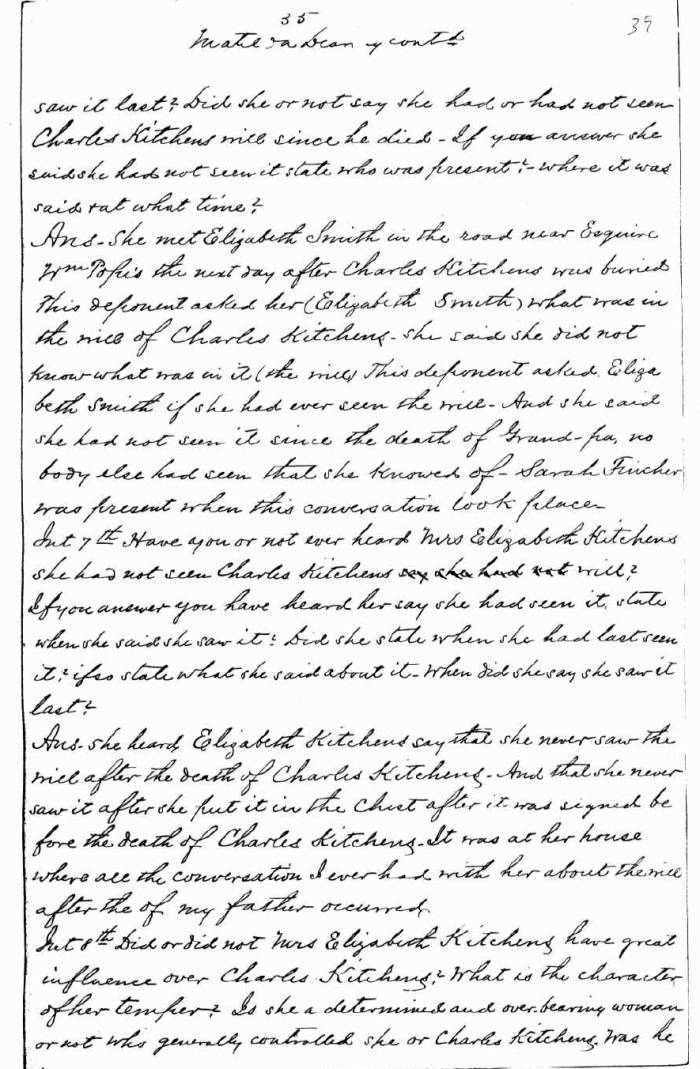 35
39
Matilda Deany contd
saw it last? Did she or not say she had or had not seen
Charles Kitchens will since he died - If you answer she
said she had not seen it state who was present? - where it was
said & at what time?
Ans - She met Elizabeth Smith in the road near Esquire
Wm the next day after Charles Kitchens was buried
This deponent asked her (Elizabeth Smith) what was in
the will of Charles Kitchens - she said she did not
know what was in it (the will) This deponent asked Eliza
beth Smith if she had ever seen the will - And she said
she had not seen it since the death of Grand-pa, no
body else had seen that she knowed of - Sarah Fincher
was present when this conversation took place -
Int 7th Have you or not ever heard Mrs Elizabeth Kitchens
she had not seen Charles Kitchens say she had not will?
If you answer you have heard her say she had seen it, state
when she said she saw it? Did she state when she had last seen
it? if so state what she said about it - When did she say she saw it
last?
Ans - she heard Elizabeth Kitchens say that she never saw the
will after the death of Charles Kitchens - And that she never
saw it after she put it in the Chest after it was signed be
fore the death of Charles Kitchens - It was at her house
where all the conversation I ever had with her about the will
after the of my father occurred,
Int 8th Did or did not Mrs Elizabeth Kitchens have great
influence over Charles Kitchens? What is the character
of her temper? Is she a determined and over-bearing woman
or not Who generally controlled she or Charles Kitchens. Was he